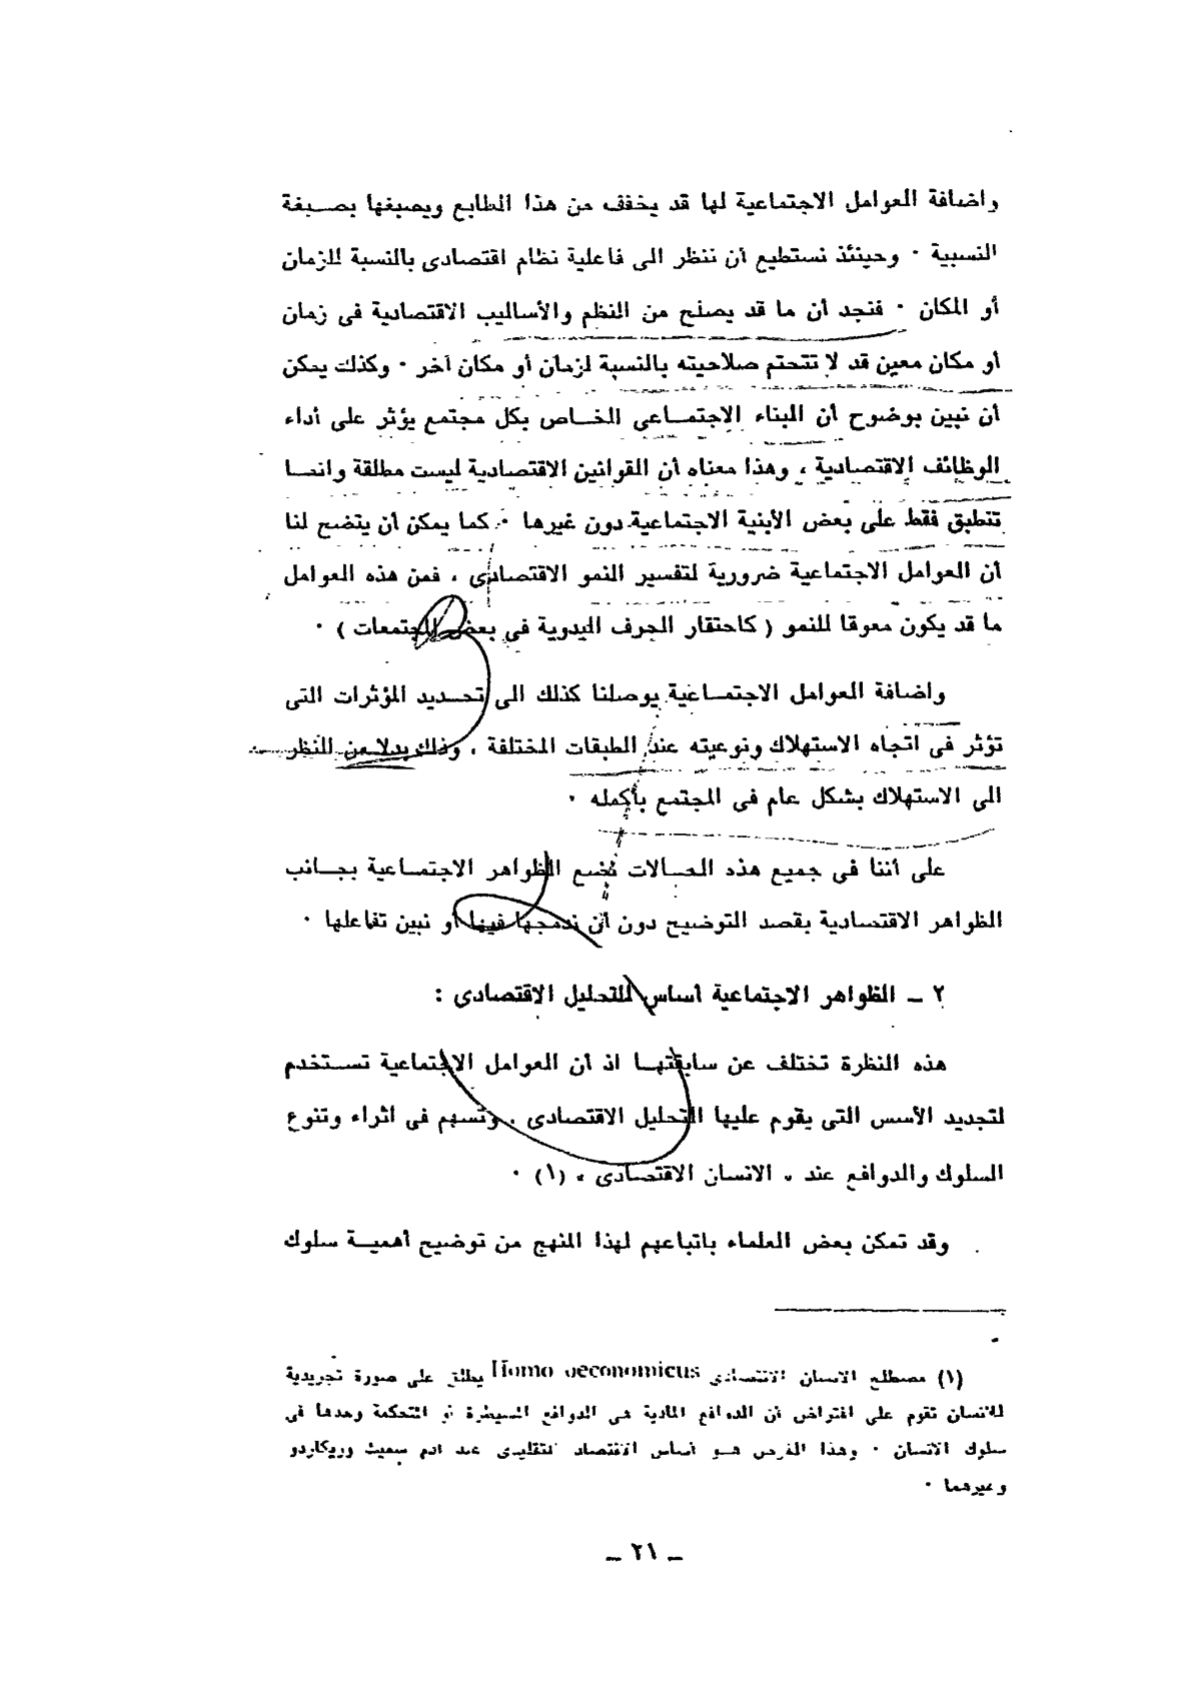 واضافة العوامل الاجتماعية لها قد يخفف من هذا الطابع ويصبغها بصبغة
النسبية ٠ وحينئذ نستطيع أن ننظر الى فاعلية نظام اقتصادى بالنسبة للزمان
أو المكان ٠ فنجد أن ما قد يصلح من النظم والأساليب الاقتصادية فى زمان
أو مكان معين قد لا تتحتم صلاحيته بالنسبة لزمان أو مكان آخر ٠ وكذلك يمكن
أن نبين بوضوح أن البناء الاجتماعى الخاص بكل مجتمع يؤثر على أداء
الوظائف الاقتصادية ، وهذا معناه أن القوانين الاقتصادية ليست مطلقة وانما
تنطبق فقط على بعض الأبنية الاجتماعية دون غيرها ٠ كما يمكن أن يتضح لنا
أن العوامل الاجتماعية ضرورية لتفسير النمو الاقتصادى ، فمن هذه العوامل
ما قد يكون معوقا للنمو ( كاحتقار الحرف اليدوية فى بعض المجتمعات ) ٠
واضافة العوامل الاجتماعية يوصلنا كذلك الى تحديد المؤثرات التى
تؤثر فى اتجاه الاستهلاك ونوعيته عند الطبقات المختلفة ، وذلك بدلا من النظر
الى الاستهلاك بشكل عام فى المجتمع بأكمله ٠
على أننا فى جميع هذه الحالات نضع الظواهر الاجتماعية بجانب
الظواهر الاقتصادية بقصد التوضيح دون أن ندمجها فيها أو نبين تفاعلها ٠
٢ ــ الظواهر الاجتماعية أساس للتحليل الاقتصادى :
هذه النظرة تختلف عن سابقتها اذ أن العوامل الاجتماعية تستخدم
لتجديد الأسس التى يقوم عليها التحليل الاقتصادى ، وتسهم فى اثراء وتنوع
السلوك والدوافع عند « الانسان الاقتصادى » (١) ٠
وقد تمكن بعض العلماء باتباعهم لهذا المنهج من توضيح أهمية سلوك
(١) مصطلح الانسان الاقتصادى Homo oeconomicus يطلق على صورة تجريدية
للانسان تقوم على افتراض أن الدوافع المادية هى الدوافع المسيطرة أو المتحكمة وحدها فى
سلوك الانسان ٠ وهذا الفرض هو أساس الاقتصاد التقليدى عند آدم سميث وريكاردو
وغيرهما ٠
ــ ٢١ ــ